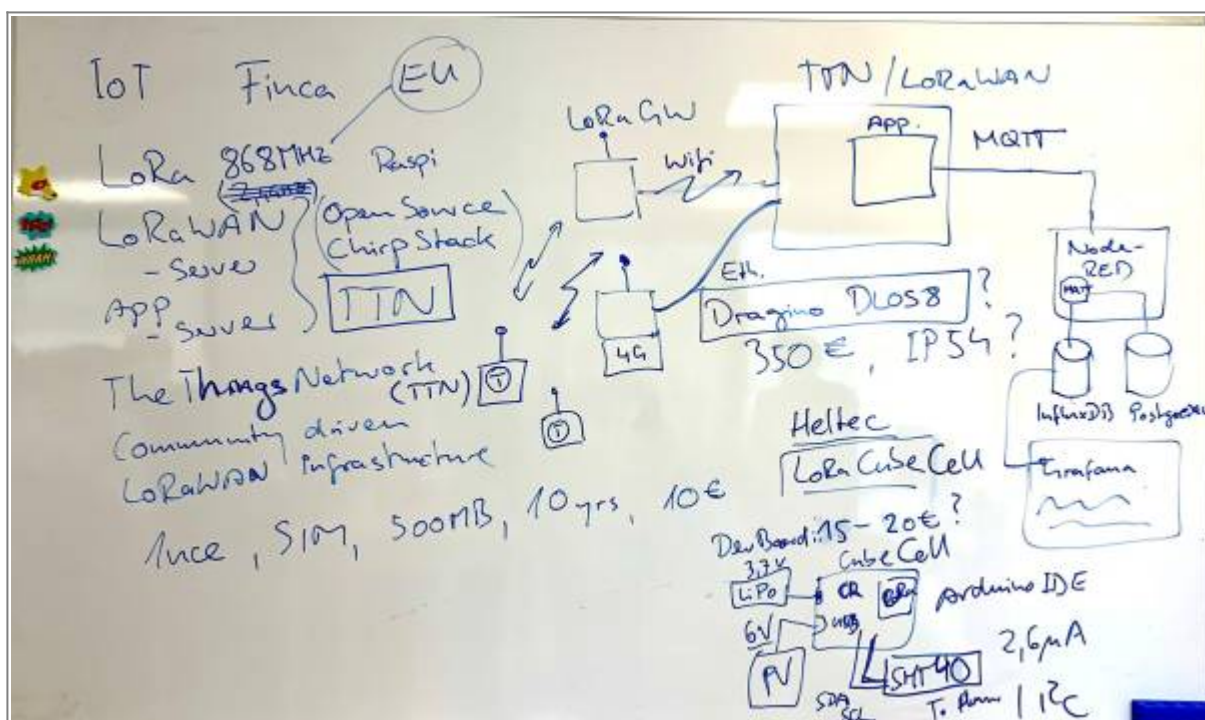 IoT Finca EU
LoRa 868MHz Raspi
LoRaWAN
- Server
APP
- Server
(Open Source
ChirpStack)
TTN
The Things Network
(TTN)
Community driven
LoRaWAN Infrastructure
1nce, SIM, 500MB, 10yrs, 10€
LoRa GW
Wifi
4G
T
T
TTN/LoRaWAN
APP.
MQTT
Eth.
Dragino DLOS8 ?
350€, IP54?
Node-
RED
MQTT
InfluxDB
Grafana
Heltec
LoRa CubeCell
DevBoard: 15-20€?
CubeCell
3,7V
LiPo
LoRa
Arduino IDE
USB
6V
PV
SHT40
2,6µA
SDA
SCL
I²C